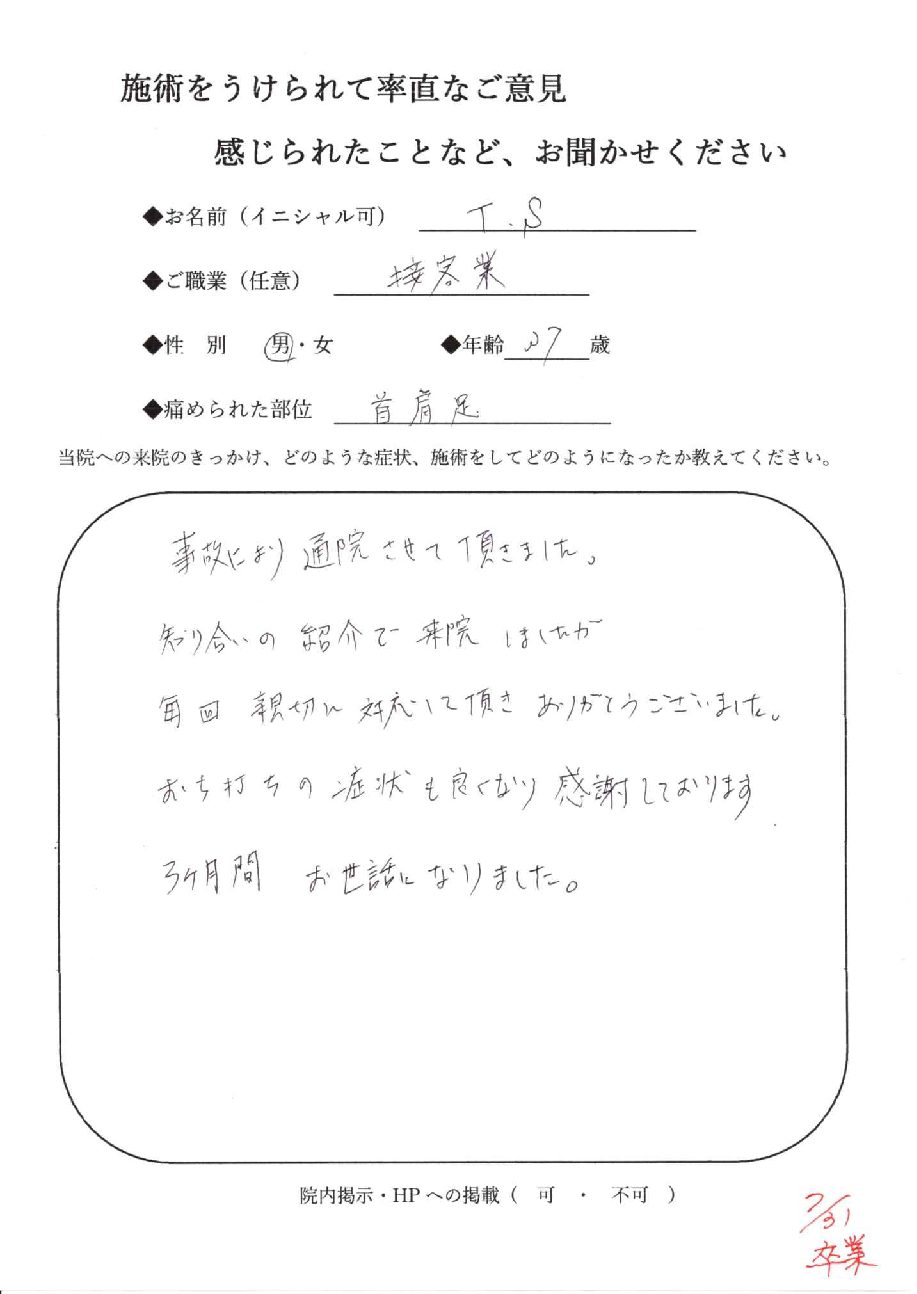 施術をうけられて率直なご意見
感じられたことなど、お聞かせください
◆お名前（イニシャル可） T.S
◆ご職業（任意） 接客業
◆性 別 男・女 ◆年齢 37 歳
◆痛められた部位 首肩足
当院への来院のきっかけ、どのような症状、施術をしてどのようになったか教えてください。
事故により 通院させて頂きました。
知り合いの 紹介で 来院 しましたが
毎回 親切に 対応して頂き ありがとうございました。
むち打ちの 症状も良くなり 感謝しております
3ヶ月間 お世話になりました。
院内掲示・HPへの掲載（ 可 ・ 不可 ）
7/31
卒業